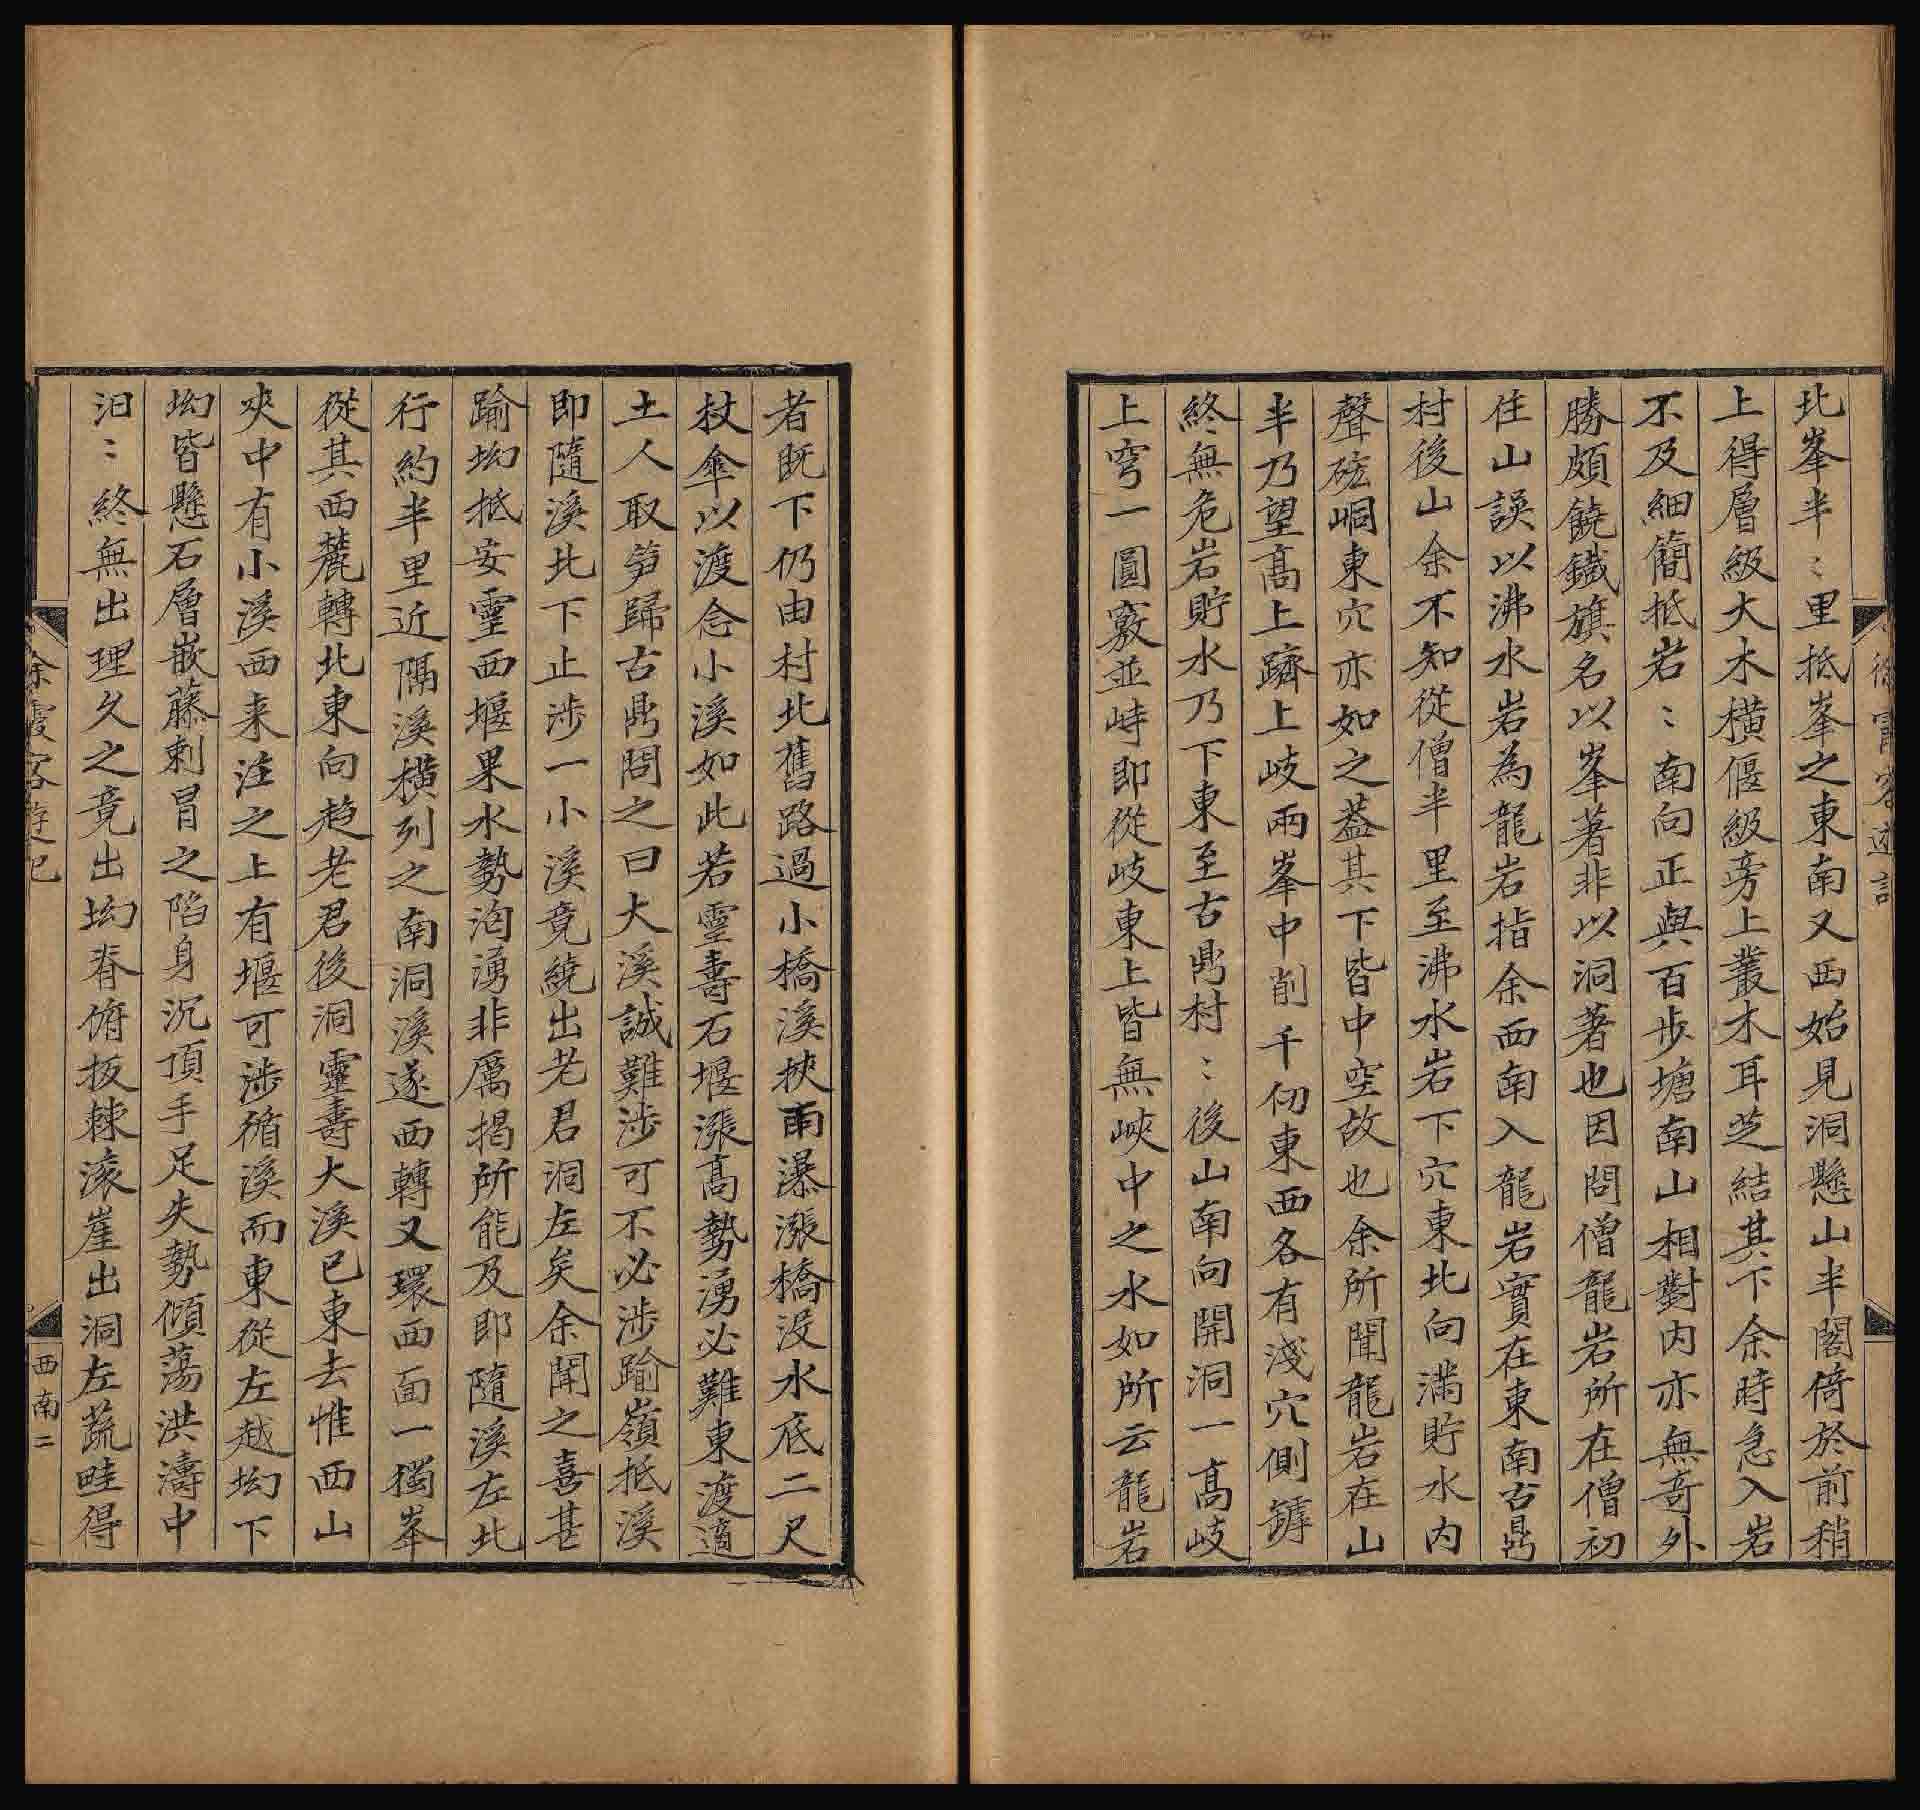 徐霞客遊記
北峯半〻里抵峯之東南又西始見洞懸山半閣倚於前稍
上得層級大木橫偃級旁上叢木耳芝結其下余時急入岩
不及細簡抵岩〻南向正與百步塘南山相對内亦無竒外
勝頗饒鐵旗名以峯著非以洞著也因問僧龍岩所在僧初
住山誤以沸水岩為龍岩指余西南入龍岩實在東南古鼎
村後山余不知從僧半里至沸水岩下穴東北向滿貯水内
聲硿峒東穴亦如之葢其下皆中空故也余所聞龍岩在山
半乃望高上躋上岐兩峯中削千仞東西各有淺穴側罅
終無危岩貯水乃下東至古鼎村〻後山南向開洞一高岐
上穹一圓竅並峙即從岐東上皆無峽中之水如所云龍岩
者既下仍由村北舊路過小橋溪挾雨瀑漲橋没水底二尺
杖傘以渡念小溪如此若靈壽石堰漲高勢湧必難東渡適
土人取笋歸古鼎問之曰大溪誠難涉可不必涉踰嶺抵溪
即隨溪北下止涉一小溪竟繞出老君洞左矣余聞之喜甚
踰坳抵安靈西堰果水勢洶湧非厲揭所能及即隨溪左北
行約半里近隔溪橫列之南洞溪遂西轉又環西面一獨峯
從其西麓轉北東向趋老君後洞靈壽大溪已東去惟西山
夾中有小溪西来注之上有堰可涉循溪而東從左越坳下
坳皆懸石層嵌藤刺冒之陷身沉頂手足失勢傾蕩洪濤中
汩〻終無出理久之竟出坳脊俯扳棘滚崖出洞左蔬畦得
徐霞客遊記
西南二